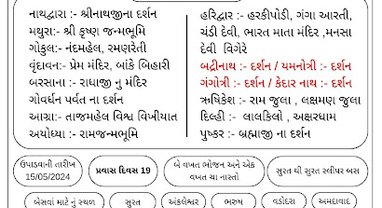 નાથદ્વારા :- શ્રીનાથજીના દર્શન
મથુરા:- શ્રી કૃષ્ણ જન્મભૂમિ
ગોકુલ:- નંદમહેલ, રમણરેતી
વૃંદાવન:- પ્રેમ મંદિર, બાંકે બિહારી
બરસાના :- રાધાજી નુ મંદિર
ગોવર્ધન પર્વત ના દર્શન
આગ્રા:- તાજમહેલ વિશ્વ વિખીયાત
અયોધ્યા :- રામજન્મભૂમિ
હરિદ્વાર :- હરકીપોડી, ગંગા આરતી,
ચંડી દેવી, ભારત માતા મંદિર ,મનસા
દેવી વિગેરે
બદ્રીનાથ :- દર્શન / યમનોત્રી :- દર્શન
ગંગોત્રી :- દર્શન / કેદાર નાથ :- દર્શન
ઋષિકેશ :- રામ જુલા , લક્ષમણ જુલા
દિલ્હી :- લાલકિલો , અક્ષરધામ
પુષ્કર :- બ્રહ્માજી ના દર્શન
ઉપાડવાની તારીખ
15/05/2024
પ્રવાસ દિવસ 19
બે વખત ભોજન અને એક
વખત ચા નાસ્તો
સુરત થી સુરત સ્લીપર બસ
બેસવા માટે નું સ્થળ
સુરત
અંકલેશ્વર
ભરુષ
વડોદરા
અમદાવાદ